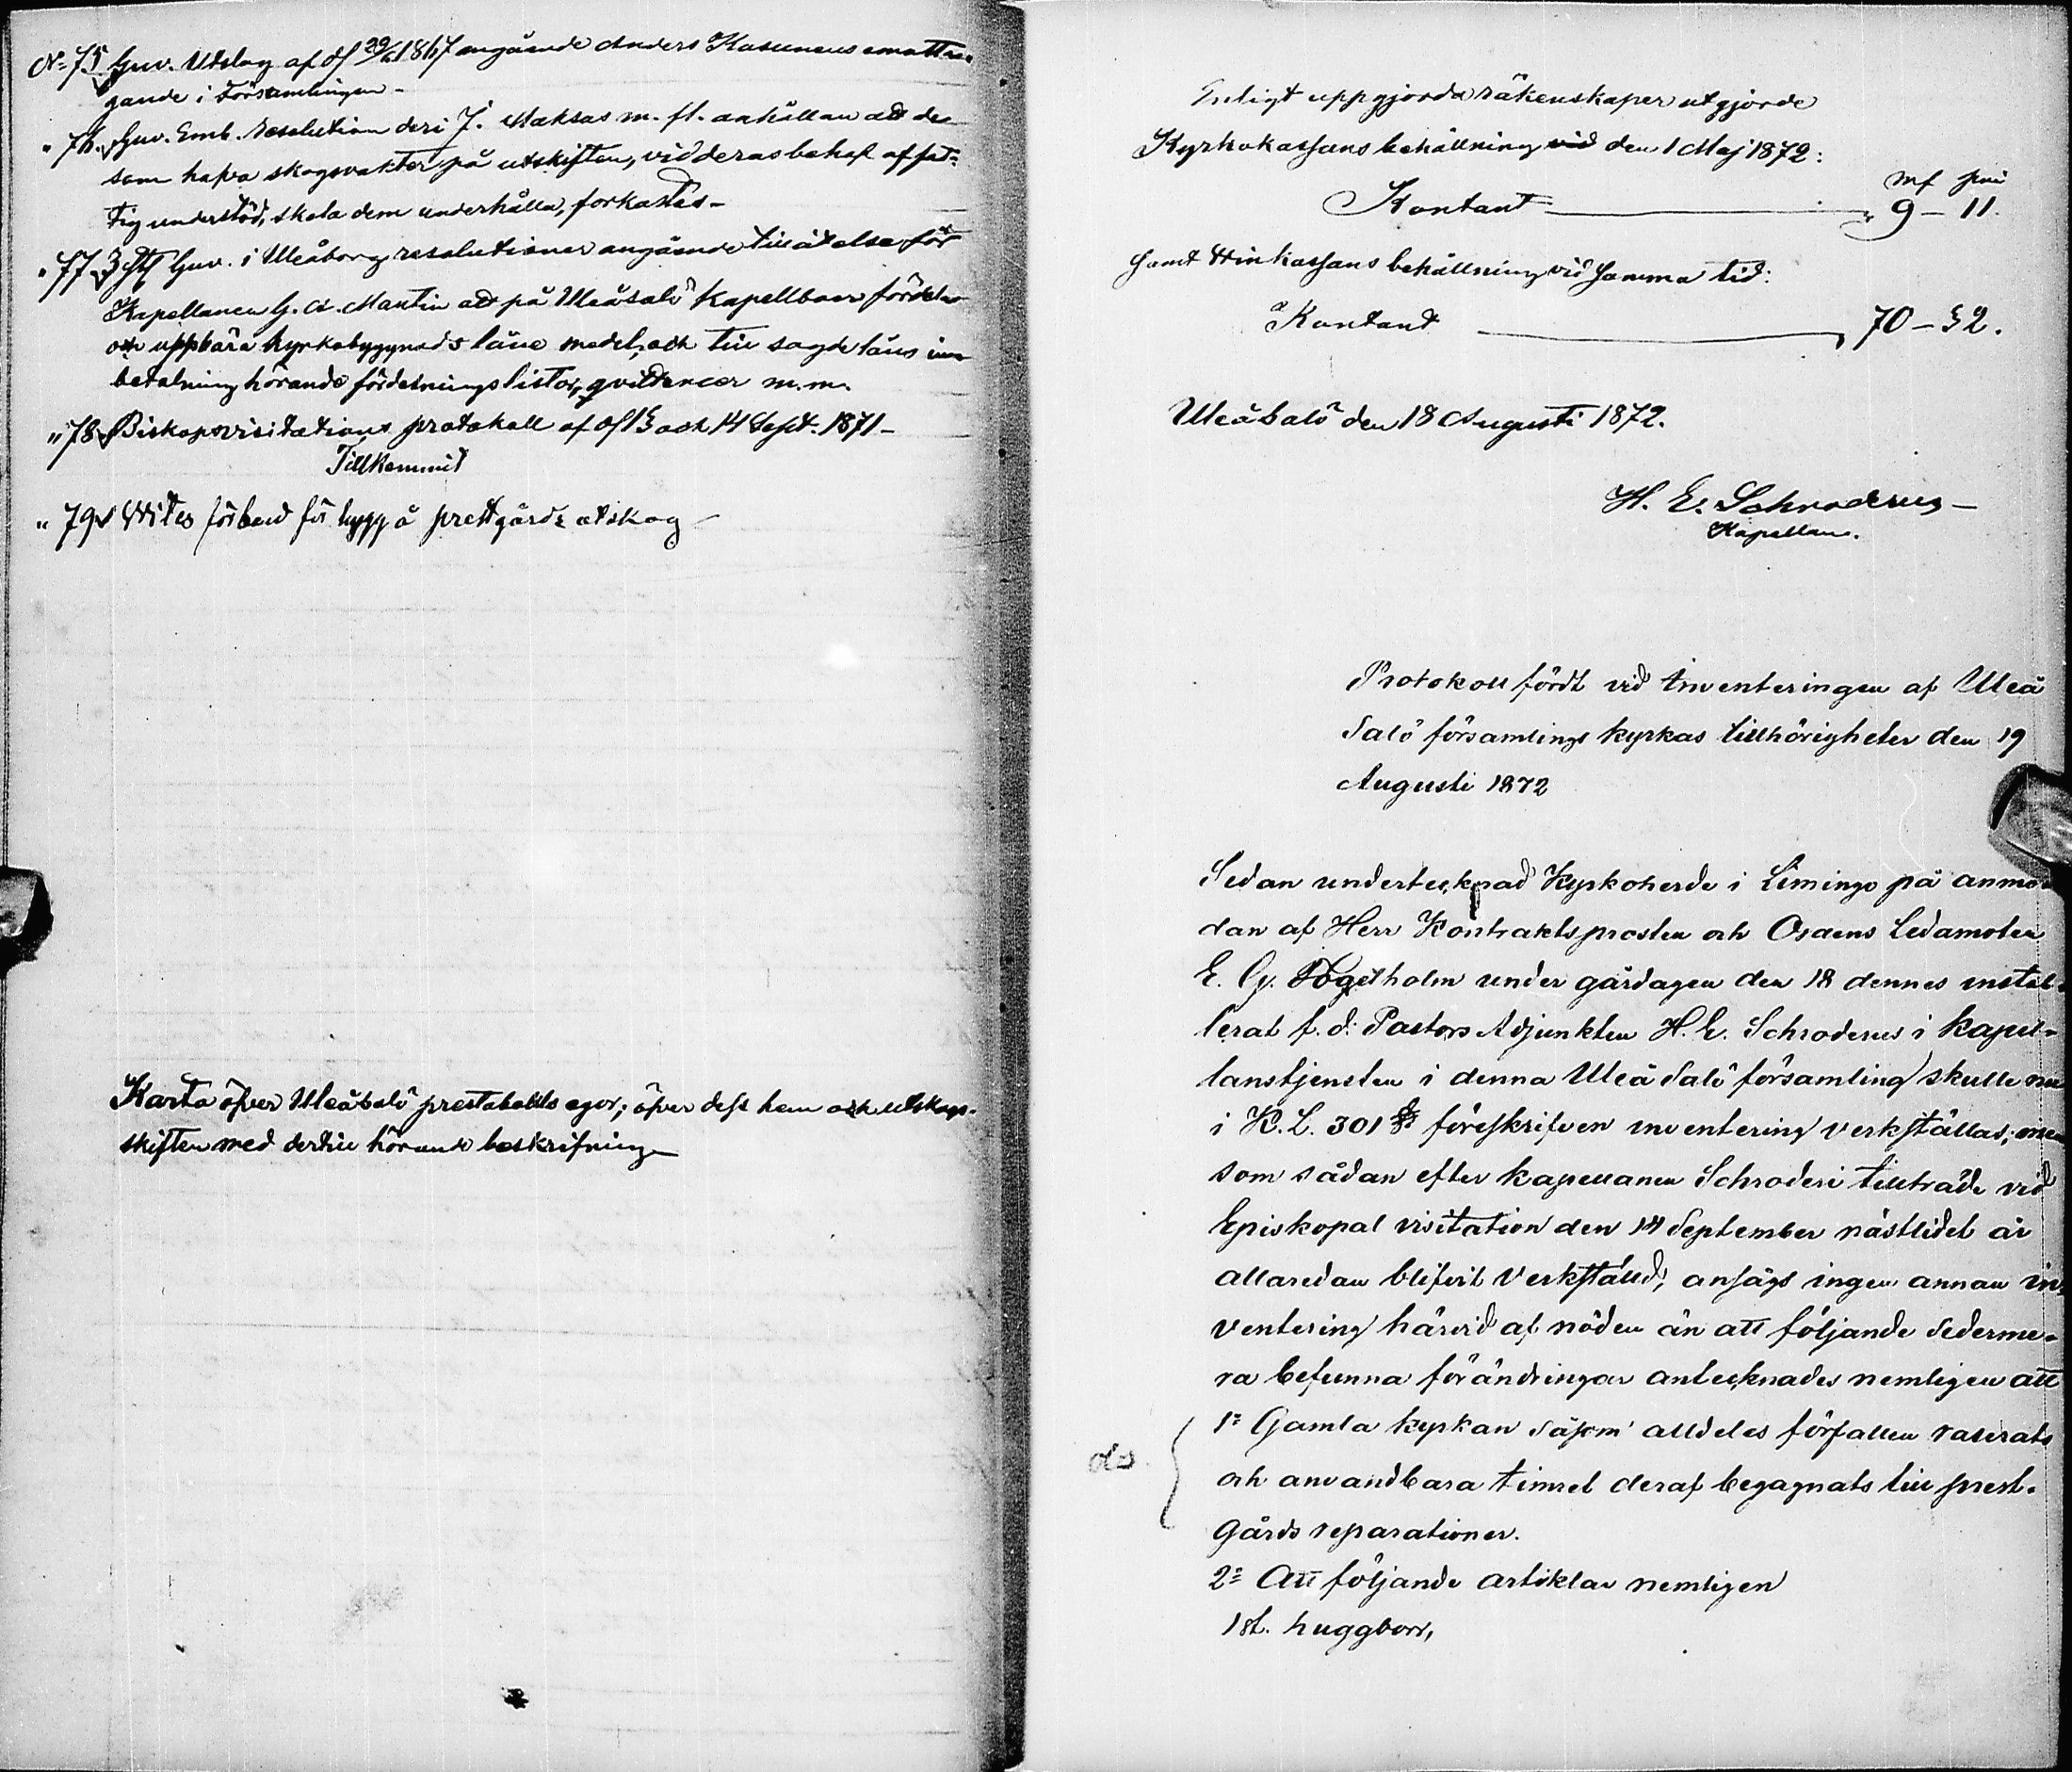 No 75 Guv. Utslag af d 29/6 1867 angående Anders Kasunens emotta-
gande i Församlingen -
" 76. Guv. Emb. resolution deri J. Maksas m. fl. anhållan att de
som hafva skogsvakter på utskiften, vid deras behof af fat-
tig understöd, skola dem underhålla, forkastas -
" 77 3 st Guv. i Uleåborg resolutioner angående tillåtelse för
Kapellanen G. A. Martin att på Uleåsalo kapellboer fördela
och uppbära kyrkobyggnads låne medel, och till sagde låns inn
betalning hörande fördelningslistor, qvittencer m.m.
" 78 Biskopsvisitations protokoll af d 13 och 14 Sept. 1871 -
Tillkommit
" 79 Wites förbud för hygg å prestgårds utskog -
Karta öfver Uleåsalo prestabohls egor; öfver dess hem och utskogs-
skiften med dertill hörande beskrifning
Enligt uppgjorda räkenskaper utgjorde
Kyrkokassans behållning vid den 1 Maj 1872:
mf pni
Kontant 9 - 11.
Samt Winkassans behållning vid samma tid:
Kontant 70 - 52.
Uleåsalo den 18 Augusti 1872.
H. E. Schroderus -
Kapellan.
Protokoll fördt vid Inventeringen af Uleå
Salo församlings kyrkas tillhörigheter den 19
Augusti 1872
Sedan undertecknad Kyrkoherde i Limingo på anmo-
dan af Herr Kontraktsprosten och Ordens Ledamoten
E. G. under gårdagen den 18 dennes instal-
lerat f. d. Pastors Adjunkten H. E. Schroderus i kapel-
lanstjensten i denna Uleå Salo församling skulle nu
i K. L. 301 § föreskrifven inventering verkställas; men
som sådan efter kapellanen Schroderi tillträde vid
Episkopal visitation den 14 September nästlidet år
allaredan blifvit verkställd, ansågs ingen annan in-
ventering härvid af nöden än att följande sederme-
ra befunna förändringar antecknades nemligen att
1o Gamla kyrkan såsom alldeles förfallen raserats
och användbara timret deraf begagnats till prest-
gårds reparationer.
2o Att följande artiklar nemligen
1 st. huggborr,